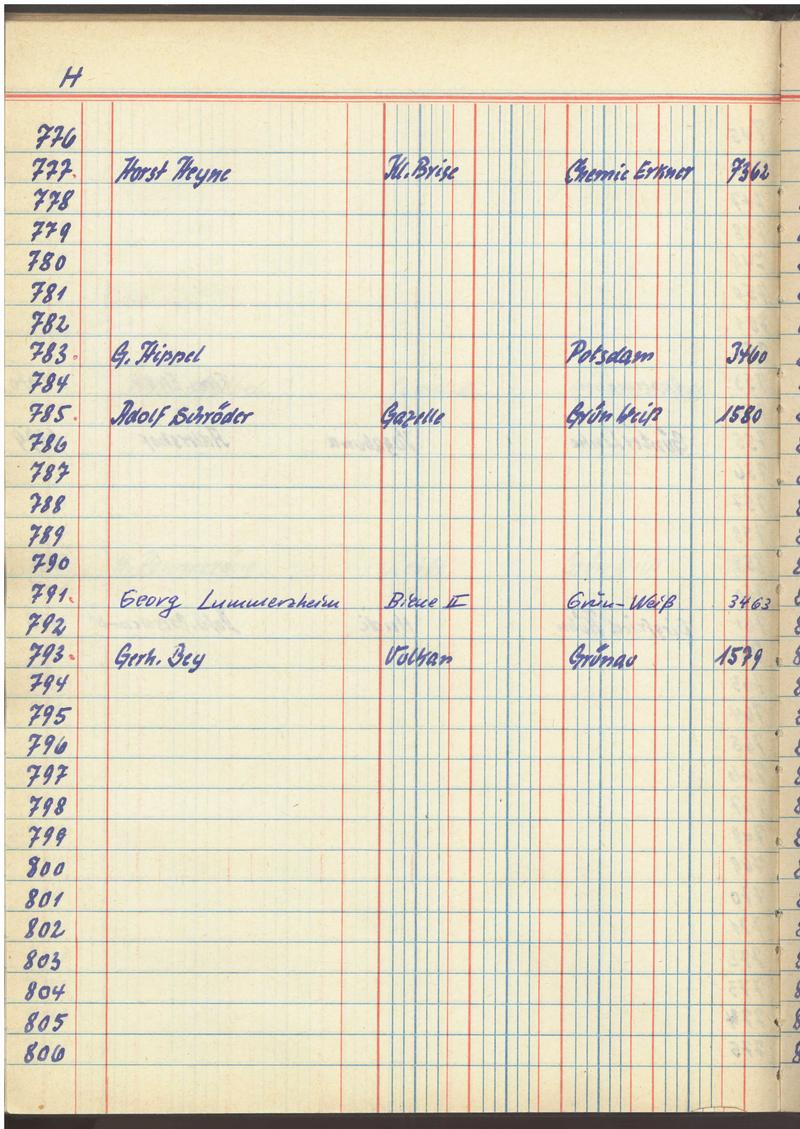 H
776
777. Horst Heyne Kl. Brise Chemie Erkner 7362
778
779
780
781
782
783. G. Hippel Potsdam 3460
784
785. Adolf Schröder Gazelle Grün Weiß 1580
786
787
788
789
790
791. Georg Lummerzheim Biene II Grün-Weiß 3463
792
793. Gerh. Bey Vulkan Grünau 1579
794
795
796
797
798
799
800
801
802
803
804
805
806